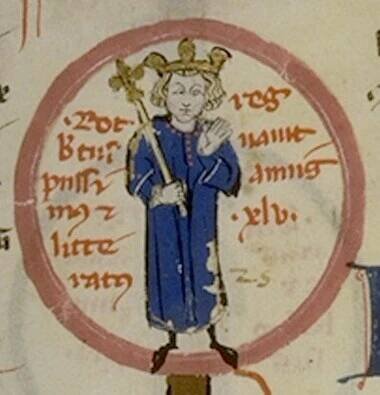 ·Rot
b'tus
piissi
mꝰ ⁊
litte
ratꝰ
reg
nauit
annis
·xlv·
25